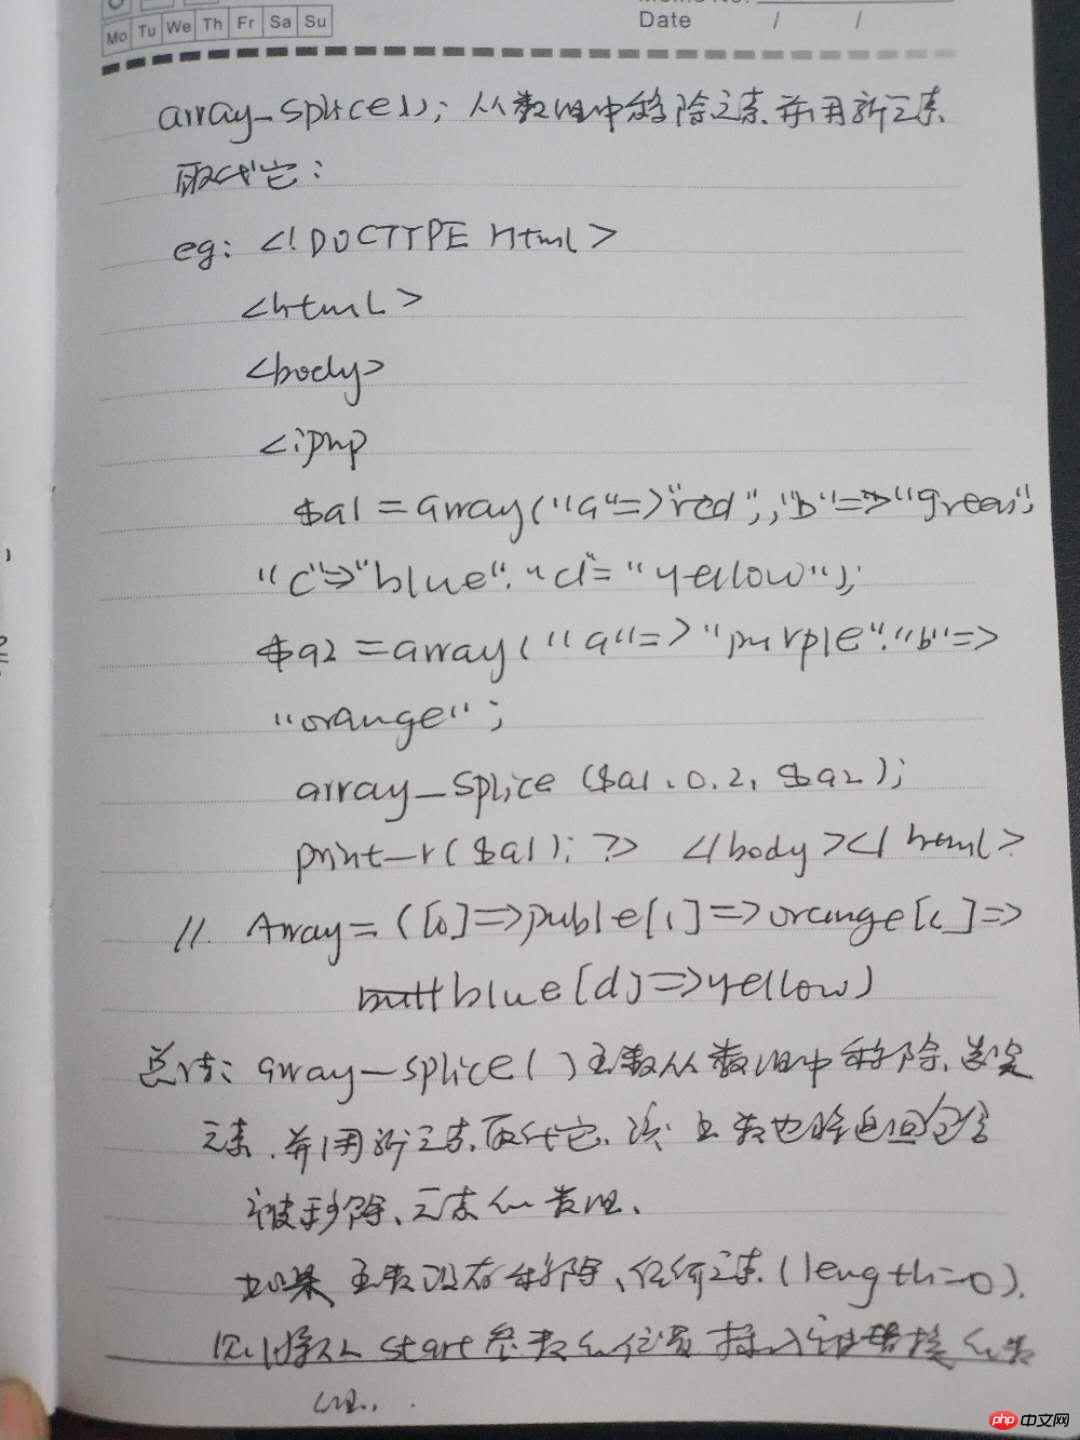 Mo Tu We Th Fr Sa Su
Date / /
array_splice(); 从数组中移除元素.并用新元素
取代它:
eg: <!DOCTYPE html>
<html>
<body>
<?php
$a1=array("a"=>"red",,"b"=>"green",
"c"=>"blue"."d"="yellow");
$a2=array("a"=>"purple"."b"=>
"orange";
array_splice($a1.0.2,$a2);
print_r($a1); ?> </body></html>
//. Array=([0]=>puble[1]=>orange[c]=>
blue[d]=>yellow)
总结: array_splice()函数从数组中移除.选定
元素.并用新元素.取代它.该函数也将返回包含
被移除、元素的数组.
如果函数没有移除、任何元素.(length=0).
则将从start参数的位置插入被替换的数
组..
php中文网